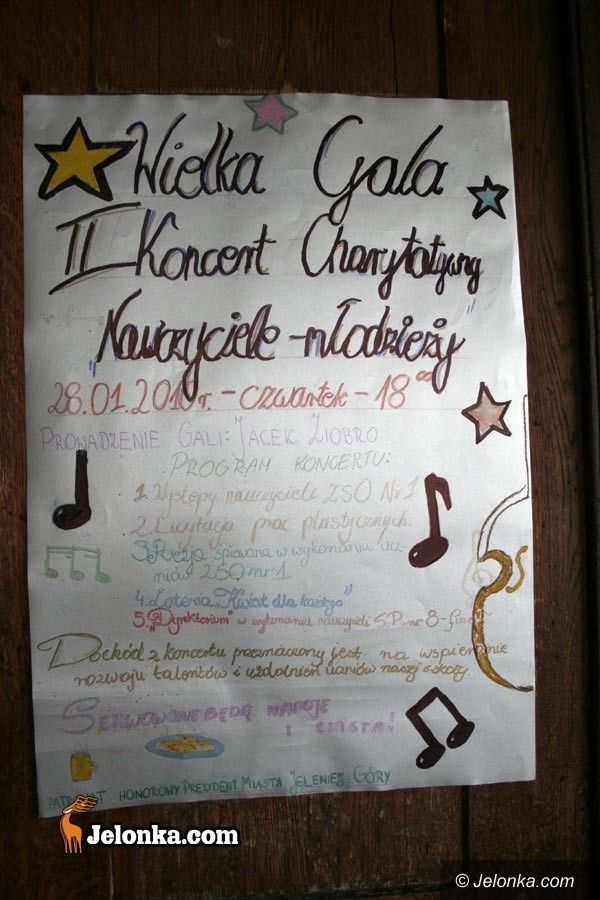 Wielka Gala
II Koncert Charytatywny
"Nauczyciele - młodzieży"
28.01.2010 r. - czwartek - 18⁰⁰
PROWADZENIE GALI: JACEK ZIOBRO
PROGRAM KONCERTU:
1. Występy nauczycieli ZSO Nr 1
2. Licytacja prac plastycznych.
3. Poezja śpiewana w wykonaniu ucz-
niów ZSO nr 1
4. Loteria "Kwiat dla każdego"
5. "Dyrektorium" w wykonaniu nauczycieli S.P. nr 8 - finał
Dochód z koncertu przeznaczony jest na wspieranie
rozwoju talentów i uzdolnień uczniów naszej szkoły.
SERWOWANE BĘDĄ NAPOJE
I CIASTA!
PATRONAT HONOROWY PREZYDENT MIASTA JELENIEJ-GÓRY
Jelonka.com
© Jelonka.com